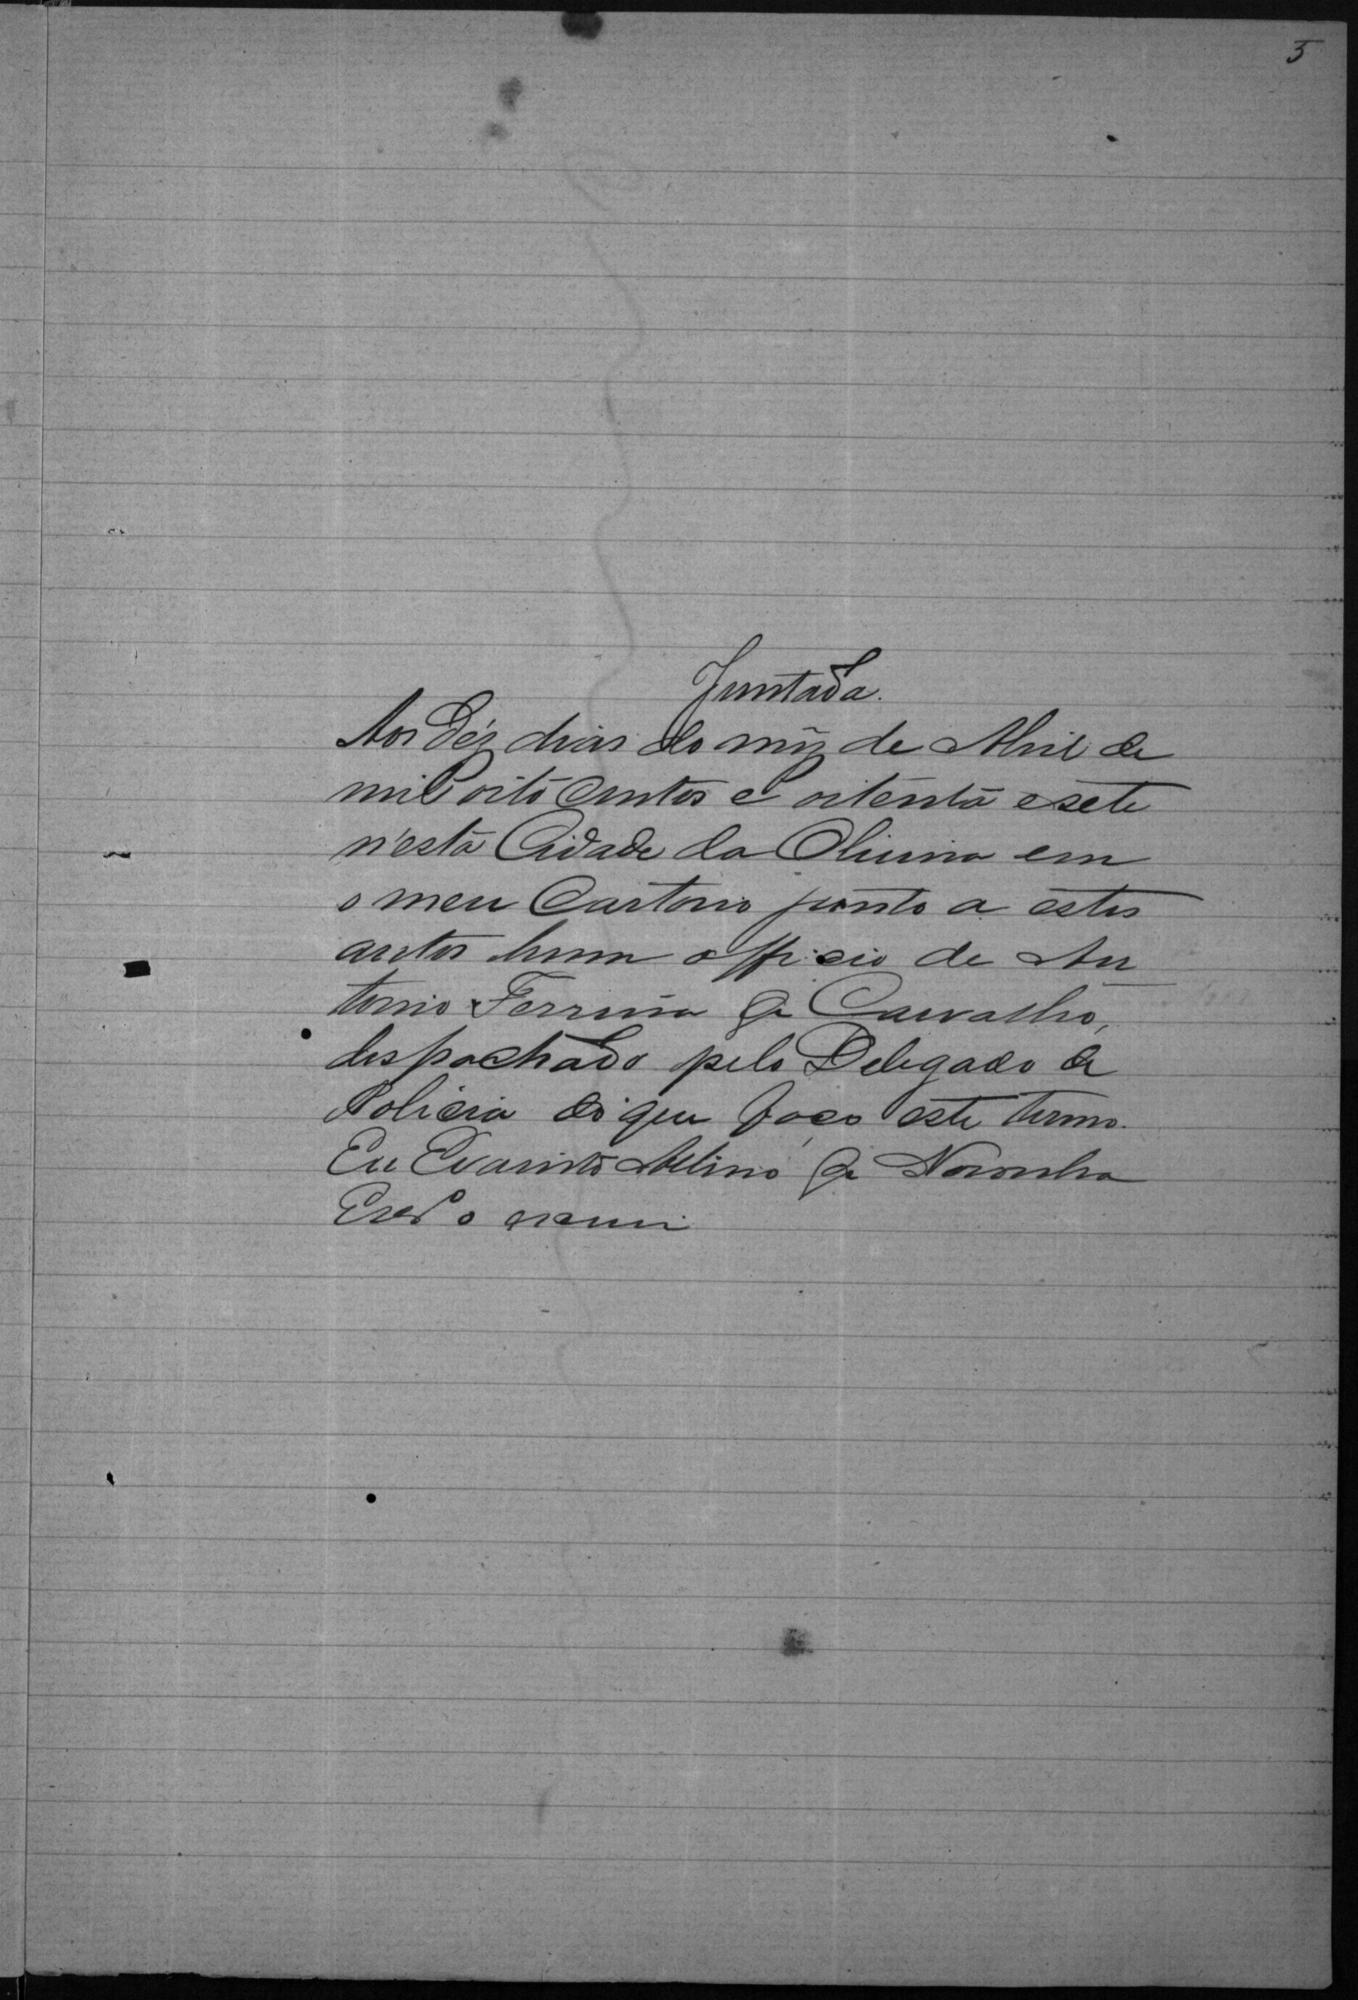 5
Juntada.
Aos déz dias do mêz de Abril de
mil oito centos e oitenta e sete
n'esta Cidade da Oliveira em
o meu Cartorio junto a estes
autos hum officio de An
tonio Ferreira de Carvalho,
despachado pelo Delegado de
Policia do que faço este termo.
Eu Evaristo Avelino de Noronha
o escrevi